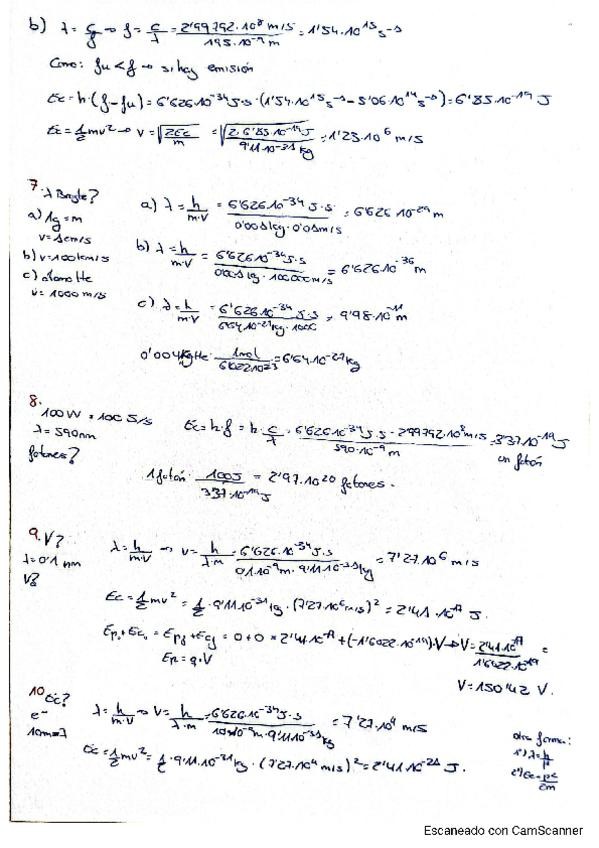 b) λ = c/f → f = c/λ = 2'99792·10⁸ m/s / 195·10⁻⁹ m = 1'54·10¹⁵ s⁻¹
Como: fu < f → si hay emisión
Ec = h·(f - fu) = 6'626·10⁻³⁴ J·s·(1'54·10¹⁵ s⁻¹ - 5'06·10¹⁴ s⁻¹) = 6'85·10⁻¹⁹ J
Ec = 1/2 mv² → v = √(2Ec/m) = √(2·6'85·10⁻¹⁹ J / 9'11·10⁻³¹ kg) = 1'23·10⁶ m/s
7. λ Broglie?
a) 1g = m
v = 1cm/s
b) v = 100km/s
c) átomo He
v = 1000 m/s
a) λ = h/m·v = 6'626·10⁻³⁴ J·s / 0'001kg·0'01m/s = 6'626·10⁻²⁹ m
b) λ = h/m·v = 6'626·10⁻³⁴ J·s / 0'001kg·100000m/s = 6'626·10⁻³⁶ m
c) λ = h/m·v = 6'626·10⁻³⁴ J·s / 6'64·10⁻²⁷ kg·1000 = 9'98·10⁻¹¹ m
0'004kgHe · 1mol / 6'022·10²³ = 6'64·10⁻²⁷ kg
8.
100W = 100 J/s
λ = 590nm
fotones?
Ec = h·f = h·c/λ = 6'626·10⁻³⁴ J·s · 2'99792·10⁸ m/s / 590·10⁻⁹ m = 3'37·10⁻¹⁹ J
un fotón
1 fotón · 100J / 3'37·10⁻¹⁹ J = 2'97·10²⁰ fotones.
9. V?
λ = 0'1 nm
λ = h/m·v → v = h/λ·m = 6'626·10⁻³⁴ J·s / 0'1·10⁻⁹ m·9'11·10⁻³¹ kg = 7'27·10⁶ m/s
Ec = 1/2 mv² = 1/2 · 9'11·10⁻³¹ kg · (7'27·10⁶ m/s)² = 2'41·10⁻¹⁷ J.
Ep₀ + Ec₀ = Epf + Ecf = 0 + 0 = 2'41·10⁻¹⁷ + (-1'6022·10⁻¹⁹)·V → V = 2'41·10⁻¹⁷ / 1'6022·10⁻¹⁹ =
Ep = q·V
V = 150'42 V.
10 Ec?
e⁻
10nm = λ
λ = h/m·v → v = h/λ·m = 6'626·10⁻³⁴ J·s / 10·10⁻⁹ m·9'11·10⁻³¹ kg = 7'27·10⁴ m/s
Ec = 1/2 mv² = 1/2 · 9'11·10⁻³¹ kg · (7'27·10⁴ m/s)² = 2'41·10⁻²¹ J.
otra forma:
1º) λ = h/p
2º) Ec = p²/2m
Escaneado con CamScanner